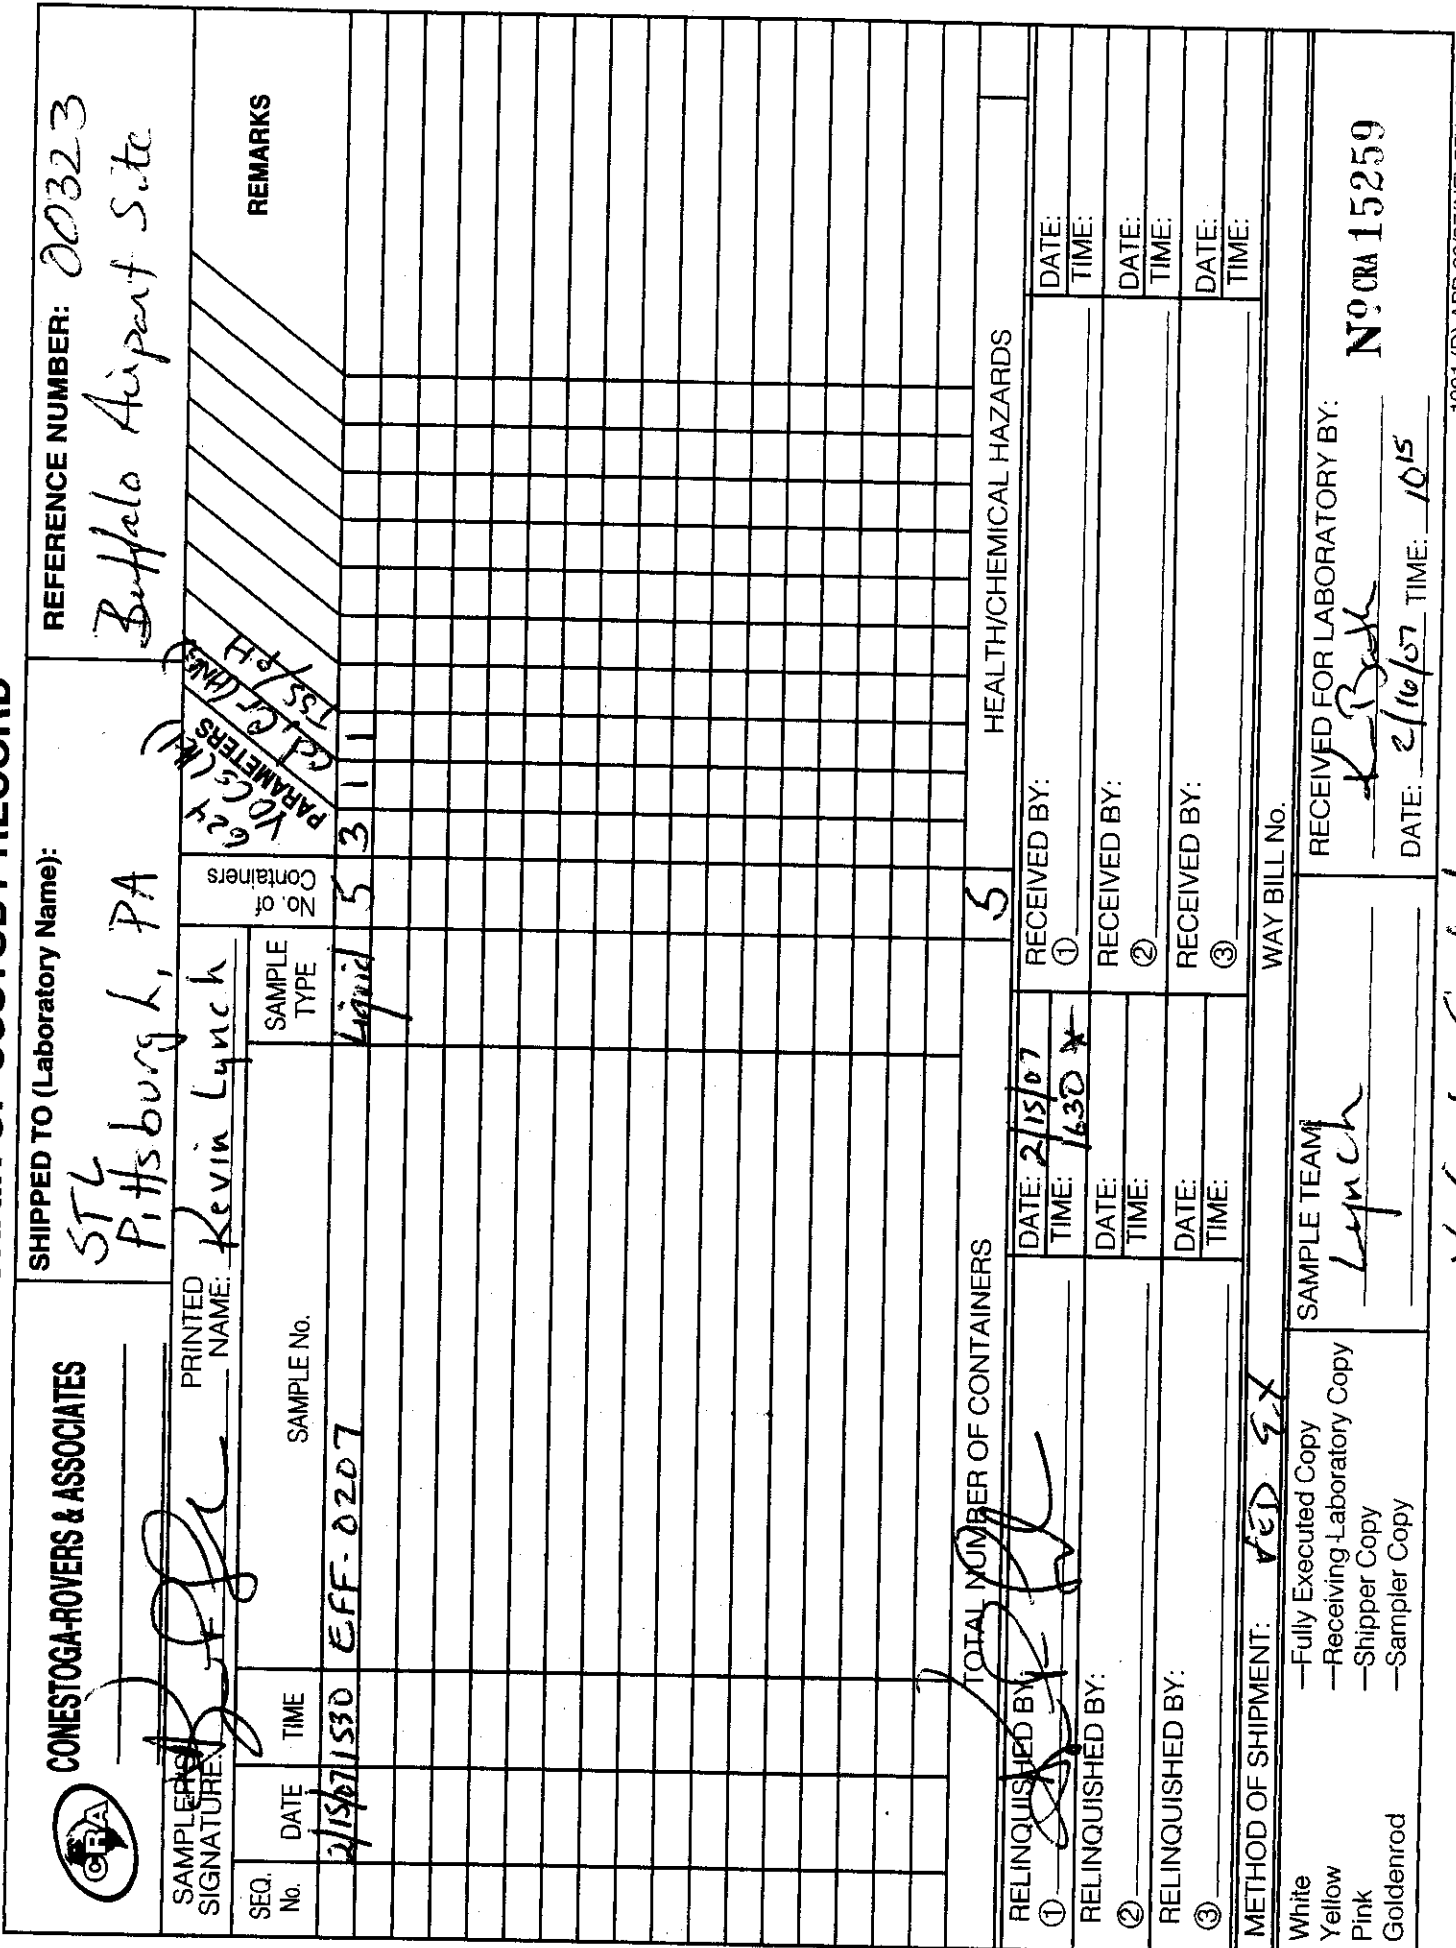 CHAIN OF CUSTODY RECORD
CRA
CONESTOGA-ROVERS & ASSOCIATES
SHIPPED TO (Laboratory Name):
STL
Pittsburgh, PA
REFERENCE NUMBER: 00323
Buffalo Airport Site
SAMPLER'S
SIGNATURE:
PRINTED
NAME: Kevin Lynch
SEQ.
No.
DATE
TIME
SAMPLE No.
SAMPLE
TYPE
No. of
Containers
PARAMETERS
624
VOCs (HCl)
Cd, Cr (HNO3)
TSS/pH
REMARKS
2/15/07 1530 EFF-0207 Liquid 5 3 1 1
TOTAL NUMBER OF CONTAINERS 5
HEALTH/CHEMICAL HAZARDS
RELINQUISHED BY:
①
DATE: 2/15/07
TIME: 1630 *
RECEIVED BY:
①
DATE:
TIME:
RELINQUISHED BY:
②
DATE:
TIME:
RECEIVED BY:
②
DATE:
TIME:
RELINQUISHED BY:
③
DATE:
TIME:
RECEIVED BY:
③
DATE:
TIME:
METHOD OF SHIPMENT: FED EX
WAY BILL No.
White —Fully Executed Copy
Yellow —Receiving Laboratory Copy
Pink —Shipper Copy
Goldenrod —Sampler Copy
SAMPLE TEAM:
Lynch
RECEIVED FOR LABORATORY BY:
DATE: 2/16/07 TIME: 1015
Nº CRA 15259